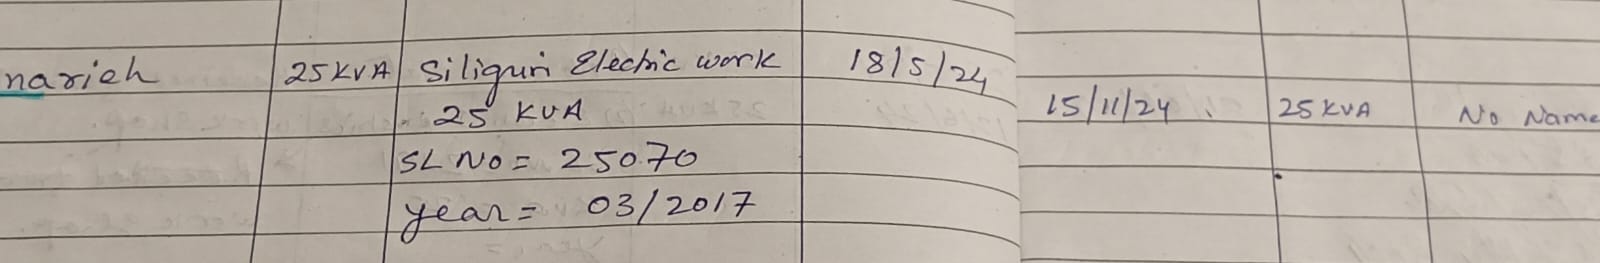 narieh 25KVA Siliguri Electric work 18/5/24
25 KVA
15/11/24 25 KVA No Name
SL NO = 25070
year = 03/2017